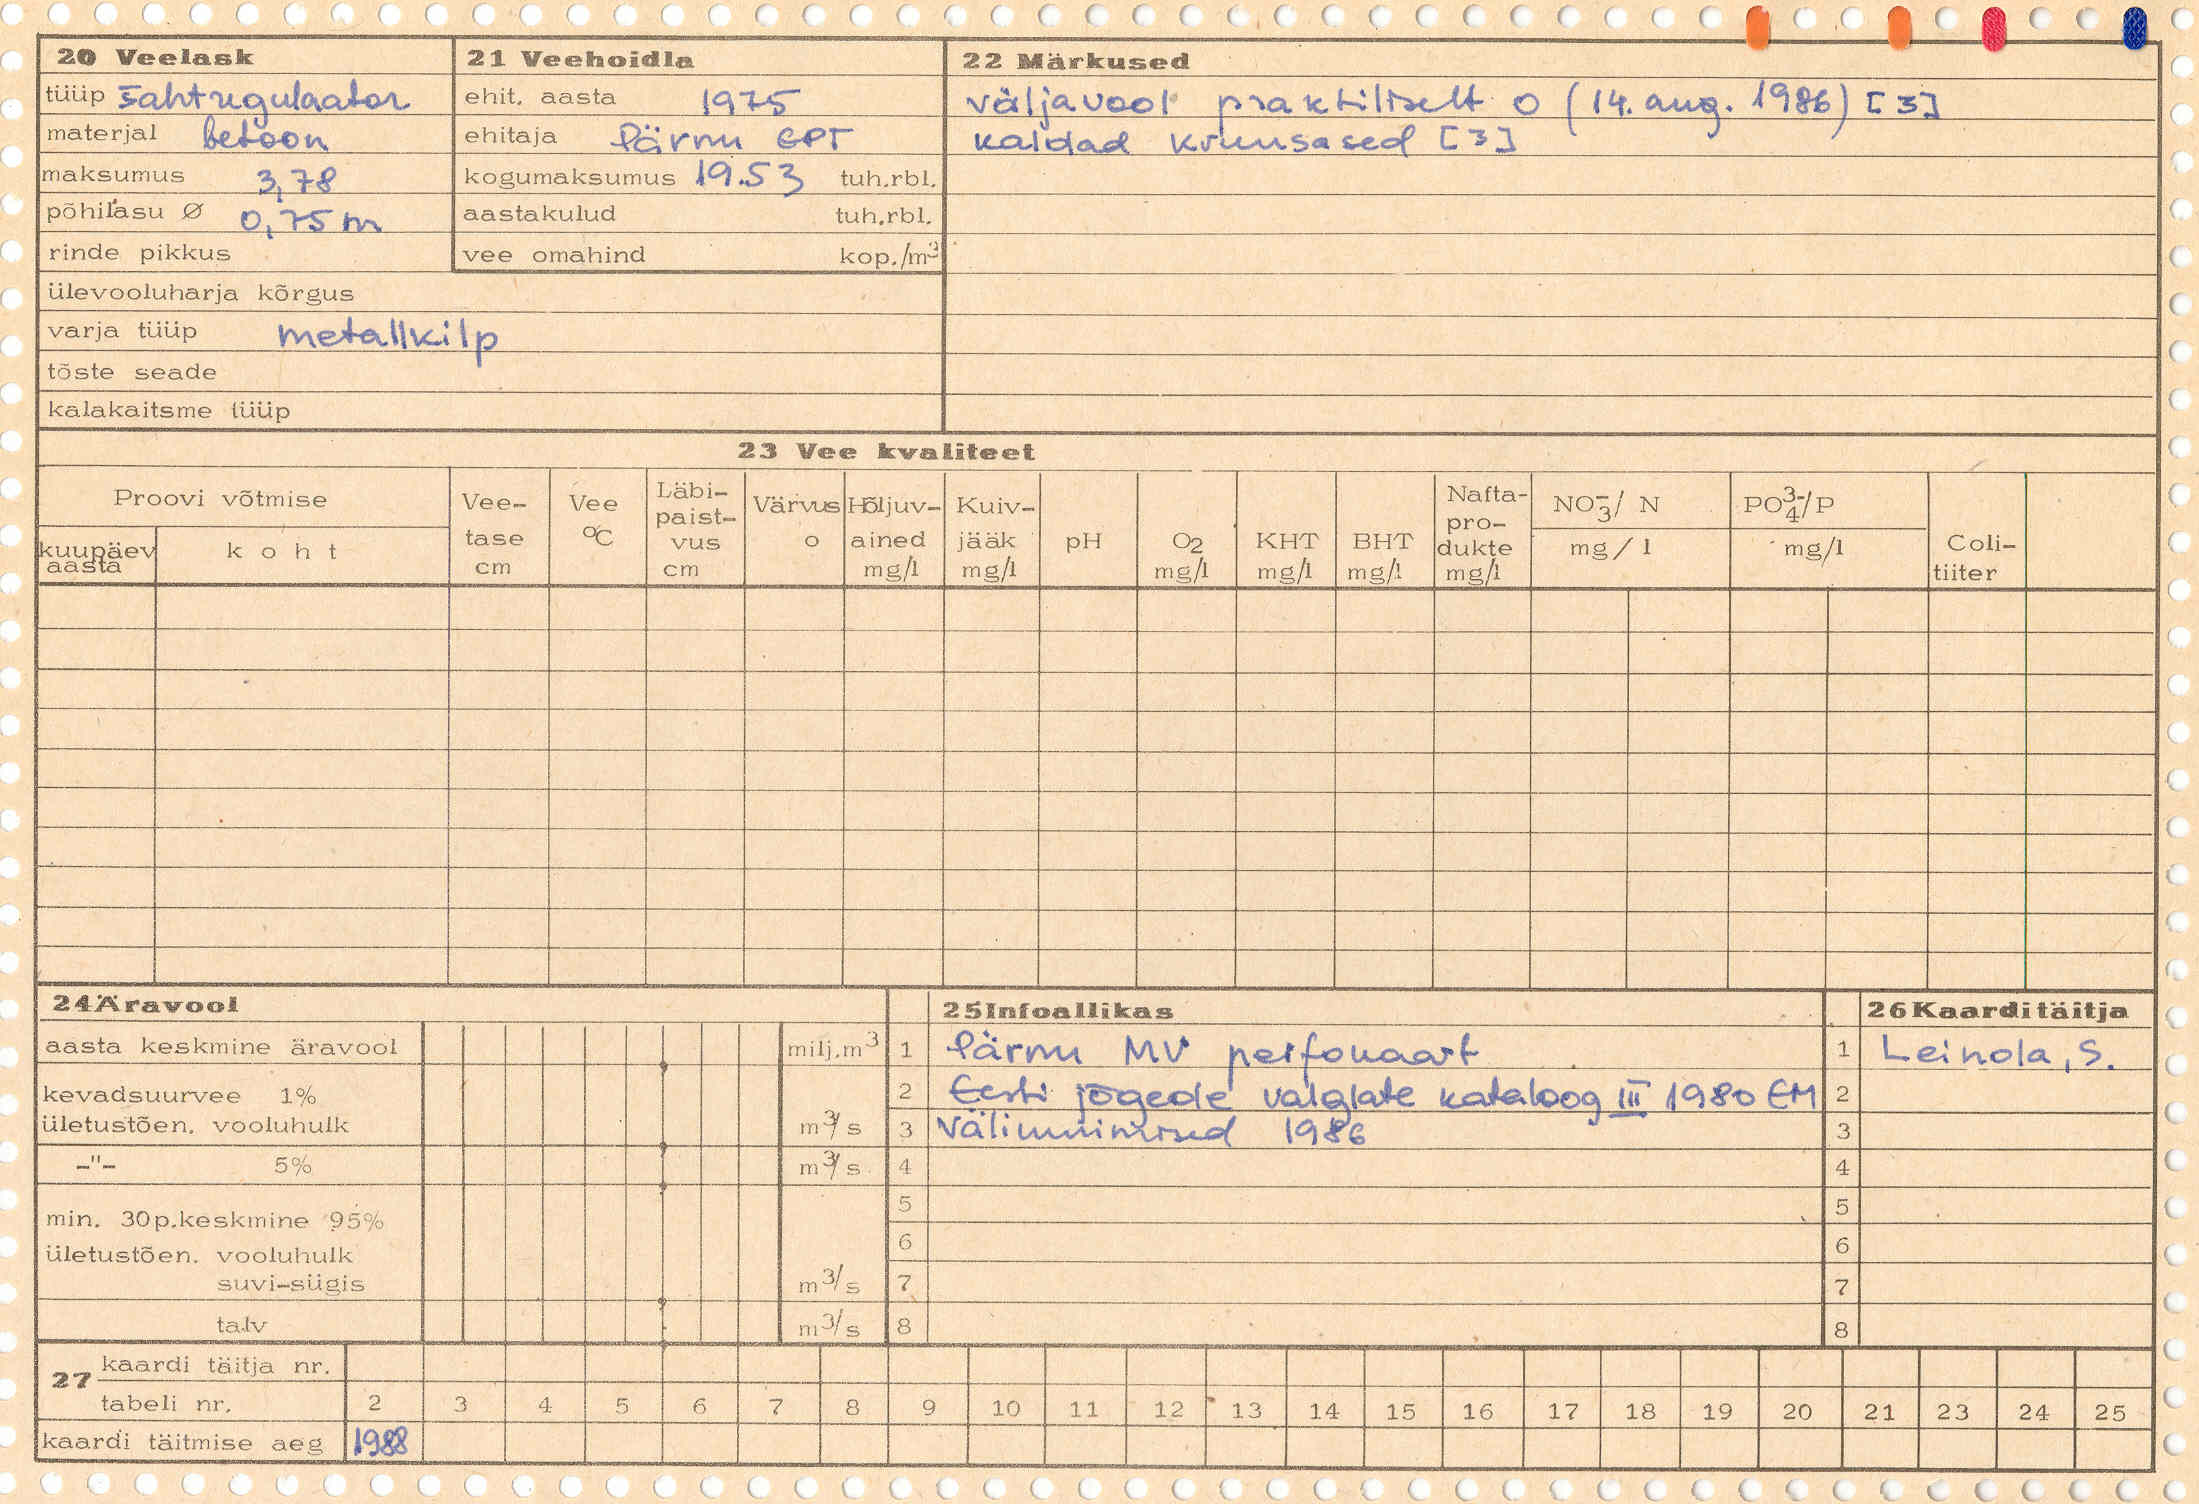 20 Veelask
tüüp šahtregulaator
materjal betoon
maksumus 3,78
põhilasu Ø 0,75 m
rinde pikkus
ülevooluharja kõrgus
varja tüüp metallkilp
tõste seade
kalakaitsme tüüp
21 Veehoidla
ehit. aasta 1975
ehitaja Pärnu EPT
kogumaksumus 19.53 tuh.rbl.
aastakulud tuh.rbl.
vee omahind kop./m³
22 Märkused
väljavool praktiliselt 0 (14. aug. 1986) [3]
kaldad kruusased [3]
23 Vee kvaliteet
Proovi võtmise
kuupäev aasta
koht
Vee-tase cm
Vee °C
Läbi-paist-vus cm
Värvus o
Hõljuv-ained mg/l
Kuiv-jääk mg/l
pH
O2 mg/l
KHT mg/l
BHT mg/l
Nafta-pro-dukte mg/l
NO3-/ N mg/l
PO4 3-/P mg/l
Coli-tiiter
24 Äravool
aasta keskmine äravool milj.m³
kevadsuurvee 1%
ületustõen. vooluhulk m³/s
-"- 5% m³/s
min. 30p.keskmine 95%
ületustõen. vooluhulk
suvi-sügis m³/s
talv m³/s
25 Infoallikas
1 Pärnu MV perfokaart
2 Eesti jõgede valglate kataloog III 1980 EM
3 Välimised 1986
4
5
6
7
8
26 Kaarditäitja
1 Leinola, S.
2
3
4
5
6
7
8
27 kaardi täitja nr.
tabeli nr. 2 3 4 5 6 7 8 9 10 11 12 13 14 15 16 17 18 19 20 21 23 24 25
kaardi täitmise aeg 1988